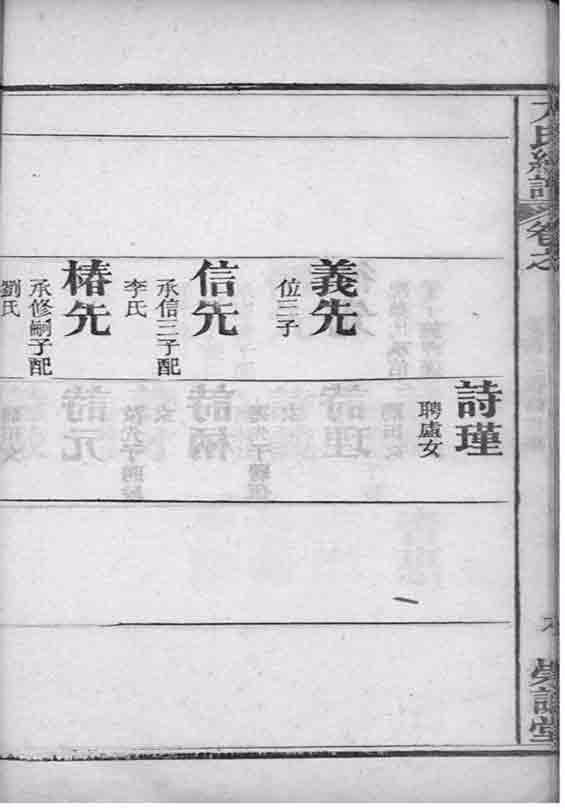 卷之
詩瑾
聘盧女
義先
位三子
信先
承信三子配
李氏
椿先
承修嗣子配
劉氏